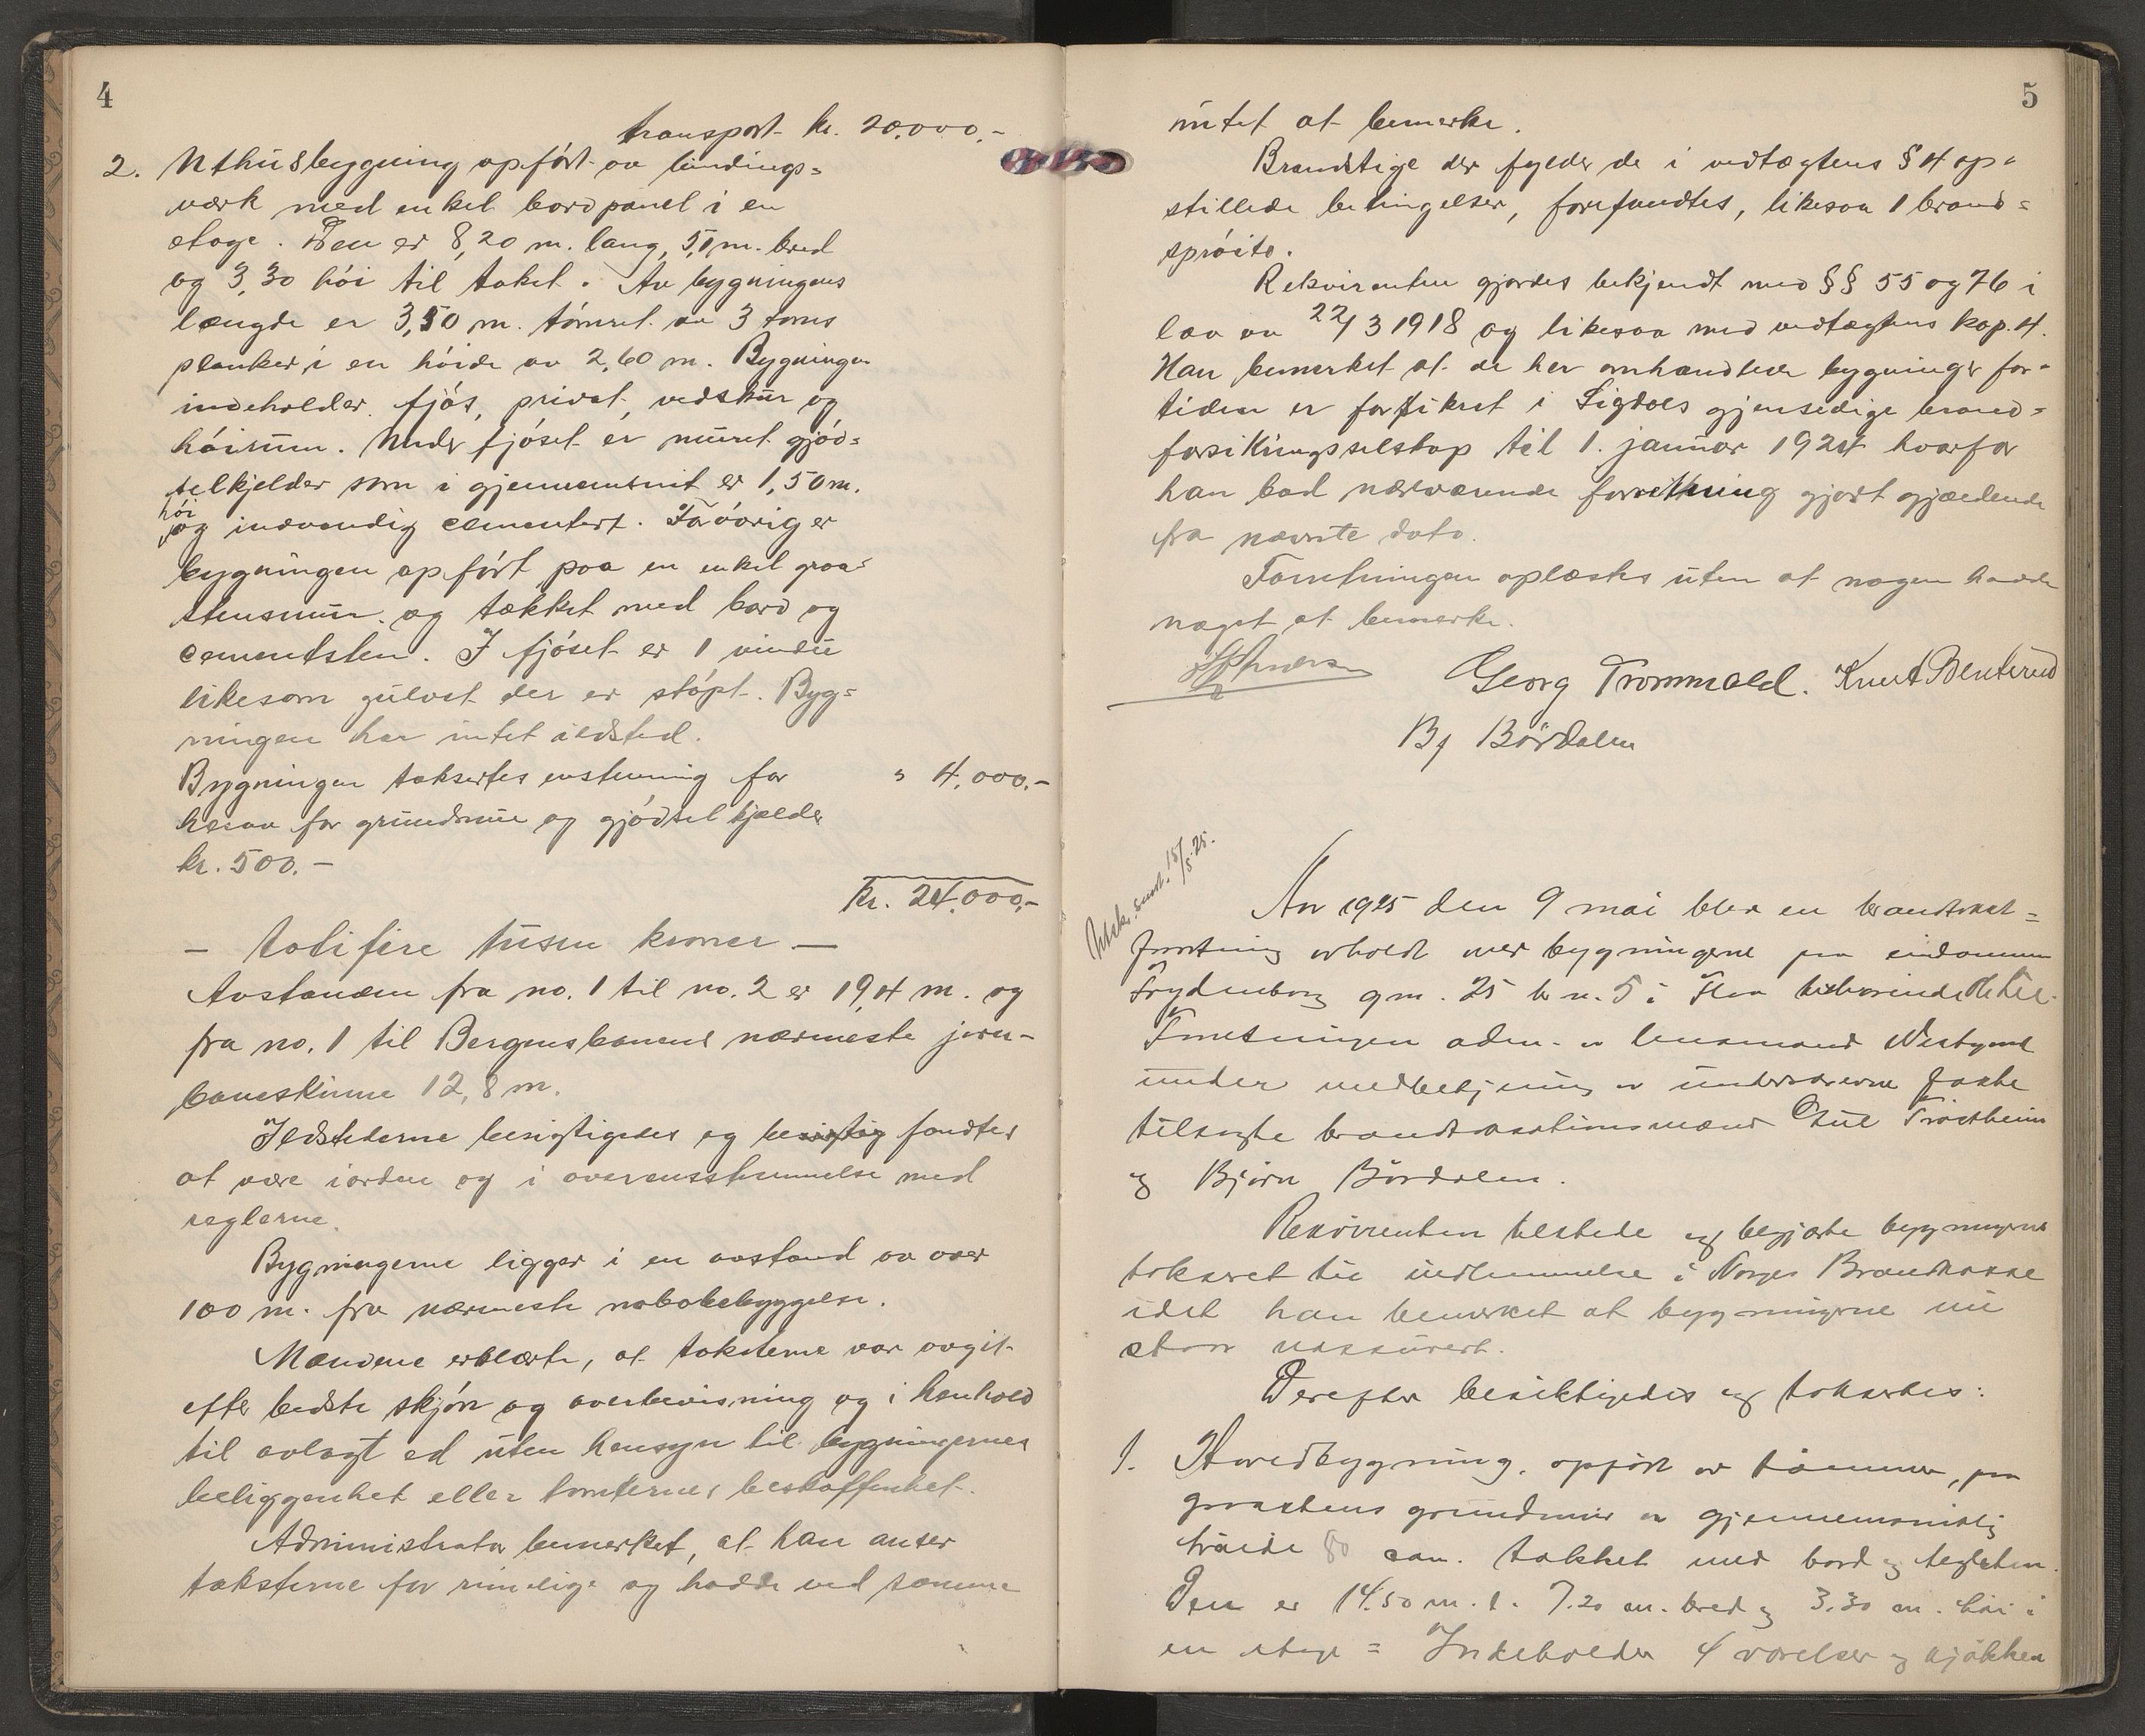 4
transport kr. 20.000.-
2. Uthusbygning opført av bindings=
verk med enkel bordpanel i en
etage. Den er 8,20 m. lang, 5,1 m. bred
og 3,30 høi til taket. Av bygningens
længde er 3,50 m. tømret av 3 toms
planker i en høide av 2,60 m. Bygningen
indeholder fjøs, privat, vedskur og
høirum. Under fjøset er muret gjød=
selkjelder som i gjennemsnit er 1,50 m.
høi
og indvendig cementert. Forøvrig er
bygningen opført paa en enkel graa=
stensmur og tækket med bord og
cementsten. I fjøset er 1 vindu
likesom gulvet der er støpt. Byg=
ningen har intet ildsted.
Bygningen taksertes enstemmig for " 4.000.-
herav for grundmur og gjødselkjelder
kr. 500.-
kr. 24.000,-
- totifire tusen kroner -
Avstanden fra no. 1 til no. 2 er 19,4 m. og
fra no. 1 til Bergensbanens nærmeste jern-
baneskinne 12,8 m.
Ildstederne besigtigedes og fandtes
at være iorden og i overensstemmelse med
reglerne.
Bygningerne ligger i en avstand av over
100 m. fra nærmeste nabobebyggelse.
Mændene erklærte, at taksterne var avgit
efter bedste skjøn og overbevisning og i henhold
til avlagt ed uten hensyn til bygningernes
beliggenhet eller tomternes beskaffenhet.
Administrator bemerket, at han anser
taksterne for rimelige og hadde ved samme
5
intet at bemerke.
Brandstige der fylder de i vedtægtens § 4 op=
stillede betingelser, forefandtes, likesaa 1 brand=
sprøite.
Rekvirenten gjordes bekjendt med §§ 55 og 76 i
lov av 22/3 1918 og likesaa med vedtægtens kap. 4.
Han bemerket at de her omhandlede bygninger for=
tiden er forsikret i Sigdals gjensidige brand=
forsikringsselskap til 1. januar 1924 hvorfor
han bad nærværende forretning gjort gjældende
fra nævnte dato.
Forretningen oplæstes uten at nogen hadde
noget at bemerke.
Georg Trommald. Knut Benterud
Bj Børdalen
Utskr. sendt 15/5 25.
Aar 1925 den 9 mai blev en brandtakst=
forretning avholdt over bygningerne paa eiendommen
Frydenborg gn. 25 b n. 5 i Flaa tilhørende
Forretningen adm. av lensmand Vestgaard
under medbetjening av undertegnede faste
tilsagte brandtakstationsmænd Gul Trøstheim
og Bjørn Børdalen.
Rekvirenten tilstede og begjærte bygningerne
taksert til indlemmelse i Norges Brandkasse
idet han bemerket at bygningerne nu
staar uassurert.
Derefter besiktigedes og taksertes:
1. Hovedbygning, opført av tømmer, paa
graastens grundmur av gjennemsnitlig
høide 80 cm. tækket med bord og teglsten.
Den er 14.50 m. l. 7.20 m. bred og 3.30 m. høi i
en etage = Indeholder 4 værelser og kjøkken